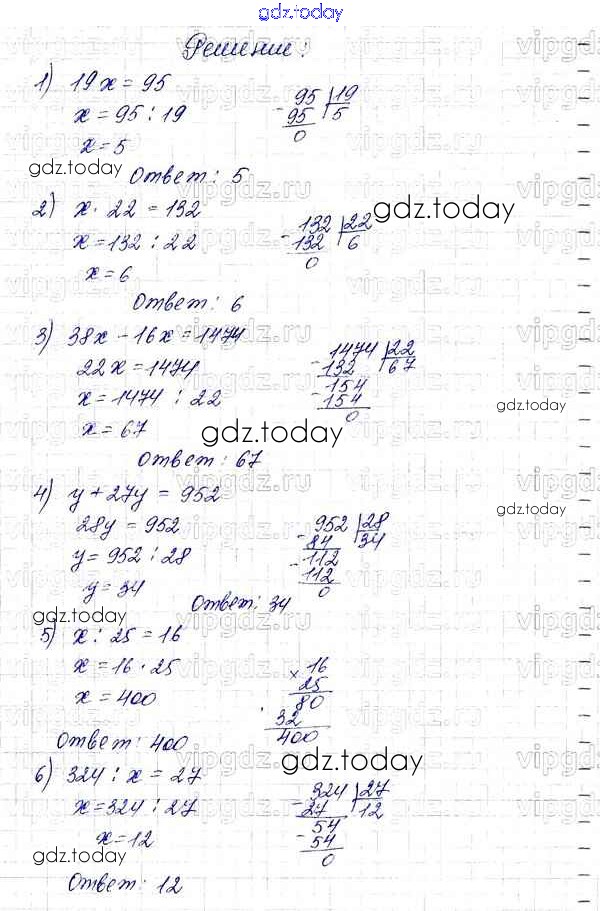 gdz.today
Решение:
1) 19x = 95
x = 95 : 19
x = 5
95 | 19
- 95 5
0
Ответ: 5
gdz.today
2) x · 22 = 132
x = 132 : 22
x = 6
132 | 22
- 132 6
0
gdz.today
Ответ: 6
3) 38x - 16x = 1474
22x = 1474
x = 1474 : 22
x = 67
1474 | 22
- 132 67
154
- 154
0
gdz.today
gdz.today
Ответ: 67
4) y + 27y = 952
28y = 952
y = 952 : 28
y = 34
952 | 28
- 84 34
112
- 112
0
gdz.today
Ответ: 34
gdz.today
5) x : 25 = 16
x = 16 · 25
x = 400
× 16
25
80
32
400
gdz.today
Ответ: 400
gdz.today
6) 324 : x = 27
x = 324 : 27
x = 12
324 | 27
- 27 12
54
- 54
0
gdz.today
gdz.today
Ответ: 12
vipgdz.ru